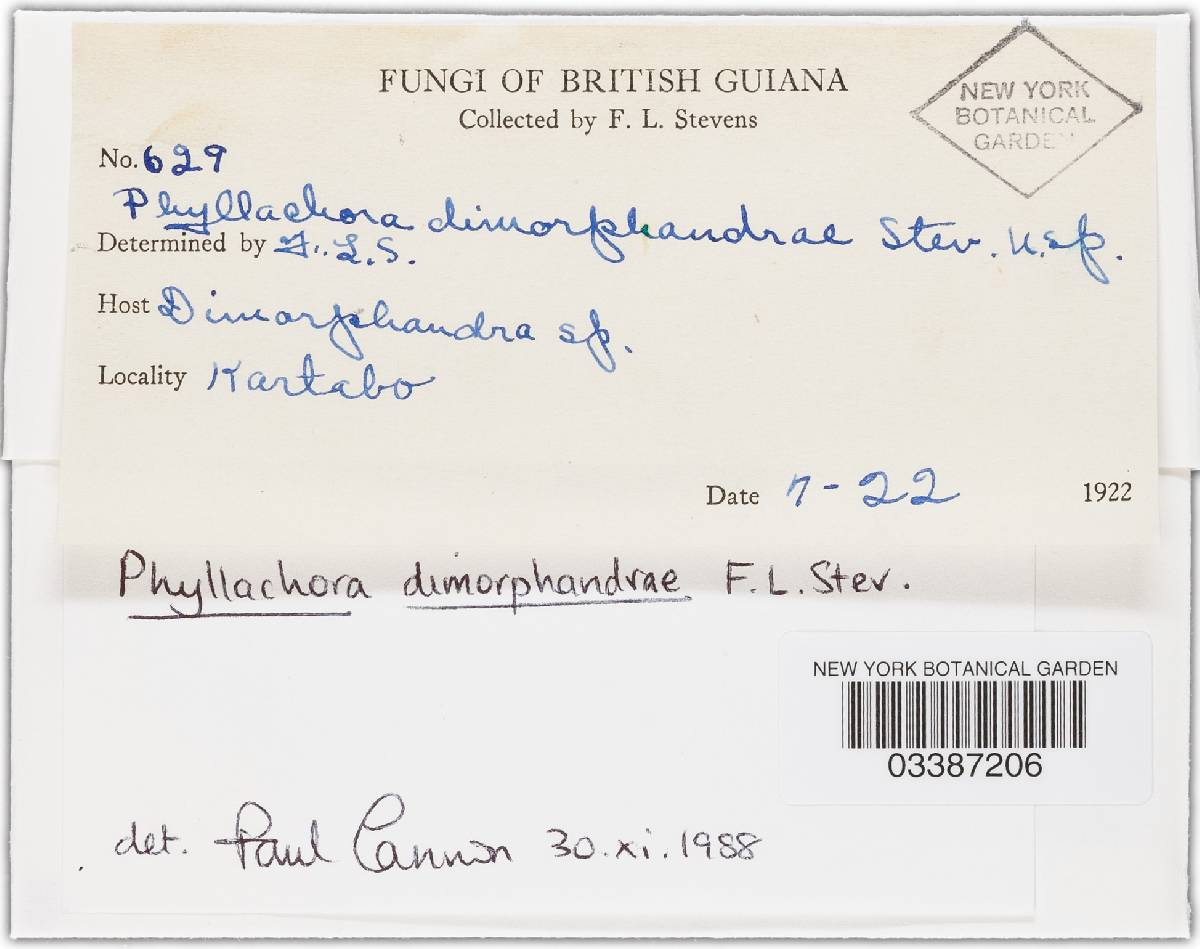 FUNGI OF BRITISH GUIANA
Collected by F. L. Stevens
NEW YORK
BOTANICAL
GARDEN
No. 629
Phyllachora dimorphandrae Stev. n.sp.
Determined by F. L. S.
Host Dimorphandra sp.
Locality Kartabo
Date 7-22 1922
Phyllachora dimorphandrae F.L. Stev.
NEW YORK BOTANICAL GARDEN
03387206
det. Paul Cannon 30.xi.1988